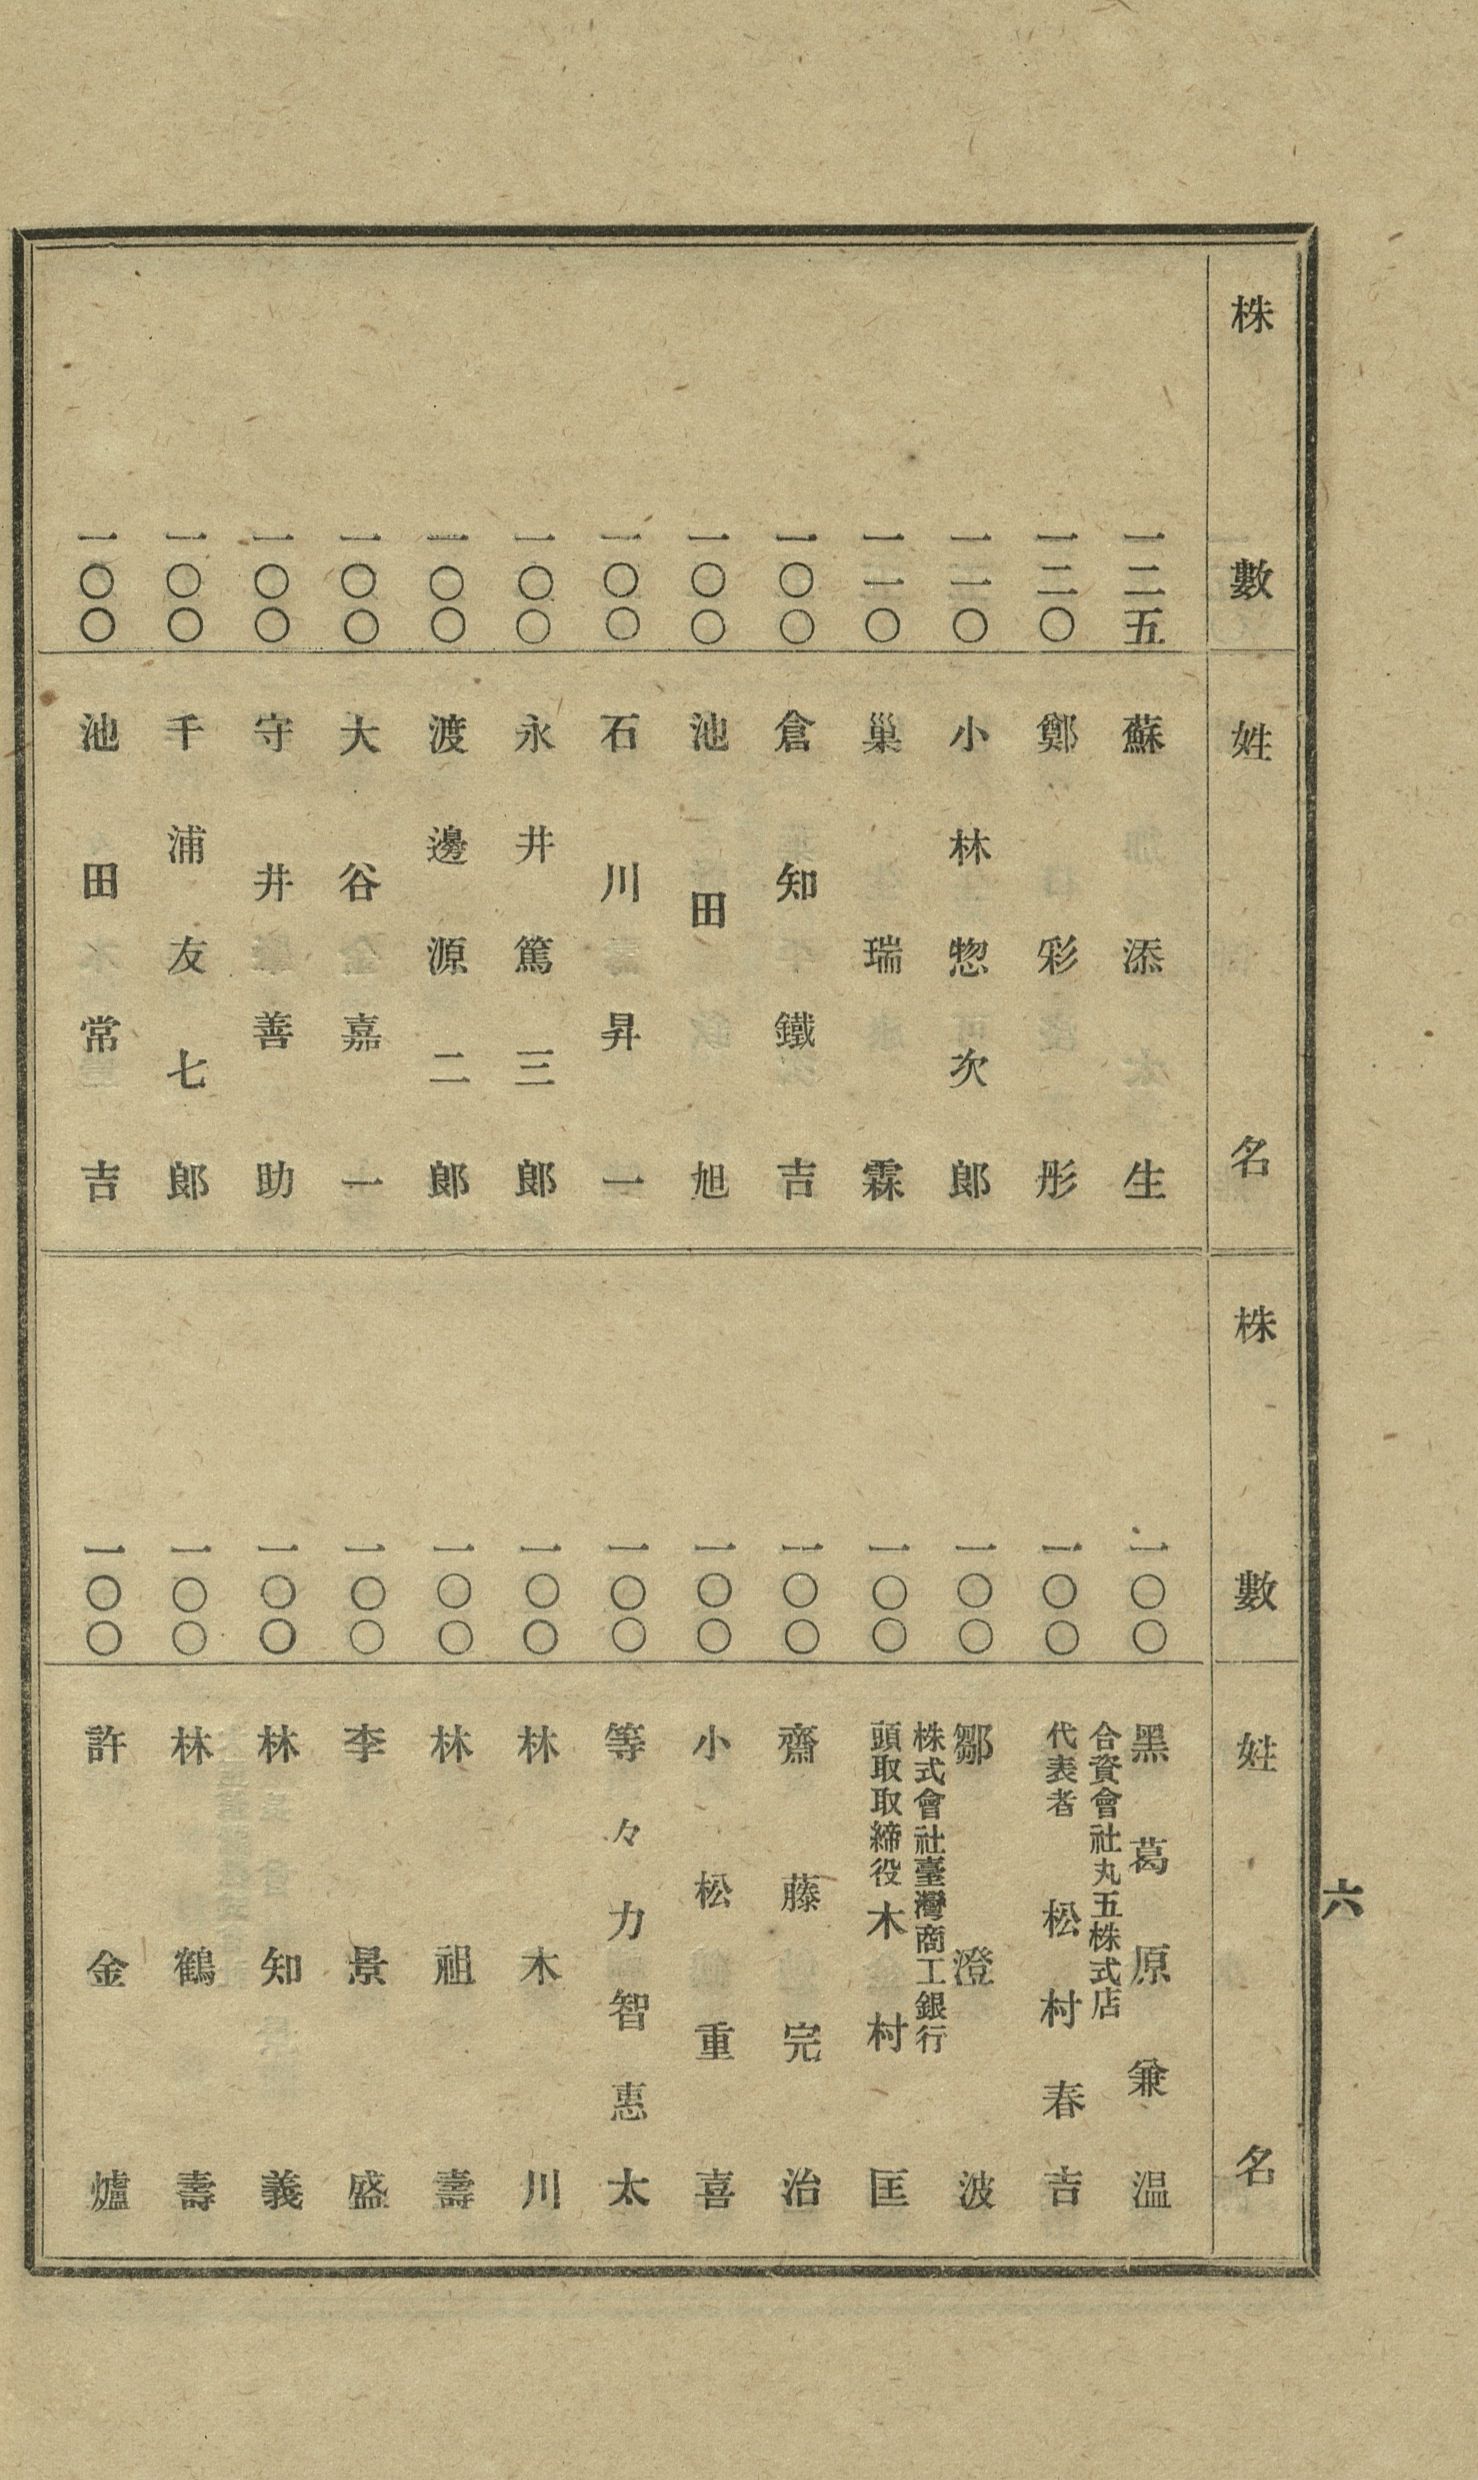 六
株數 姓名
一二五 蘇添生
一二〇 鄭彩彤
一一〇 小林惣次郎
一一〇 巢瑞霖
一〇〇 倉知鐵吉
一〇〇 池田旭
一〇〇 石川昇一
一〇〇 永井篤三郎
一〇〇 渡邊源二郎
一〇〇 大谷嘉一
一〇〇 守井善助
一〇〇 千浦友七郎
一〇〇 池田常吉
株數 姓名
一〇〇 黑葛原兼温
一〇〇 合資會社丸五株式店
代表者 松村春吉
一〇〇 鄒澄波
一〇〇 株式會社臺灣商工銀行
頭取取締役 木村匡
一〇〇 齋藤完治
一〇〇 小松重喜
一〇〇 等々力智惠太
一〇〇 林木川
一〇〇 林祖壽
一〇〇 李景盛
一〇〇 林知義
一〇〇 林鶴壽
一〇〇 許金爐